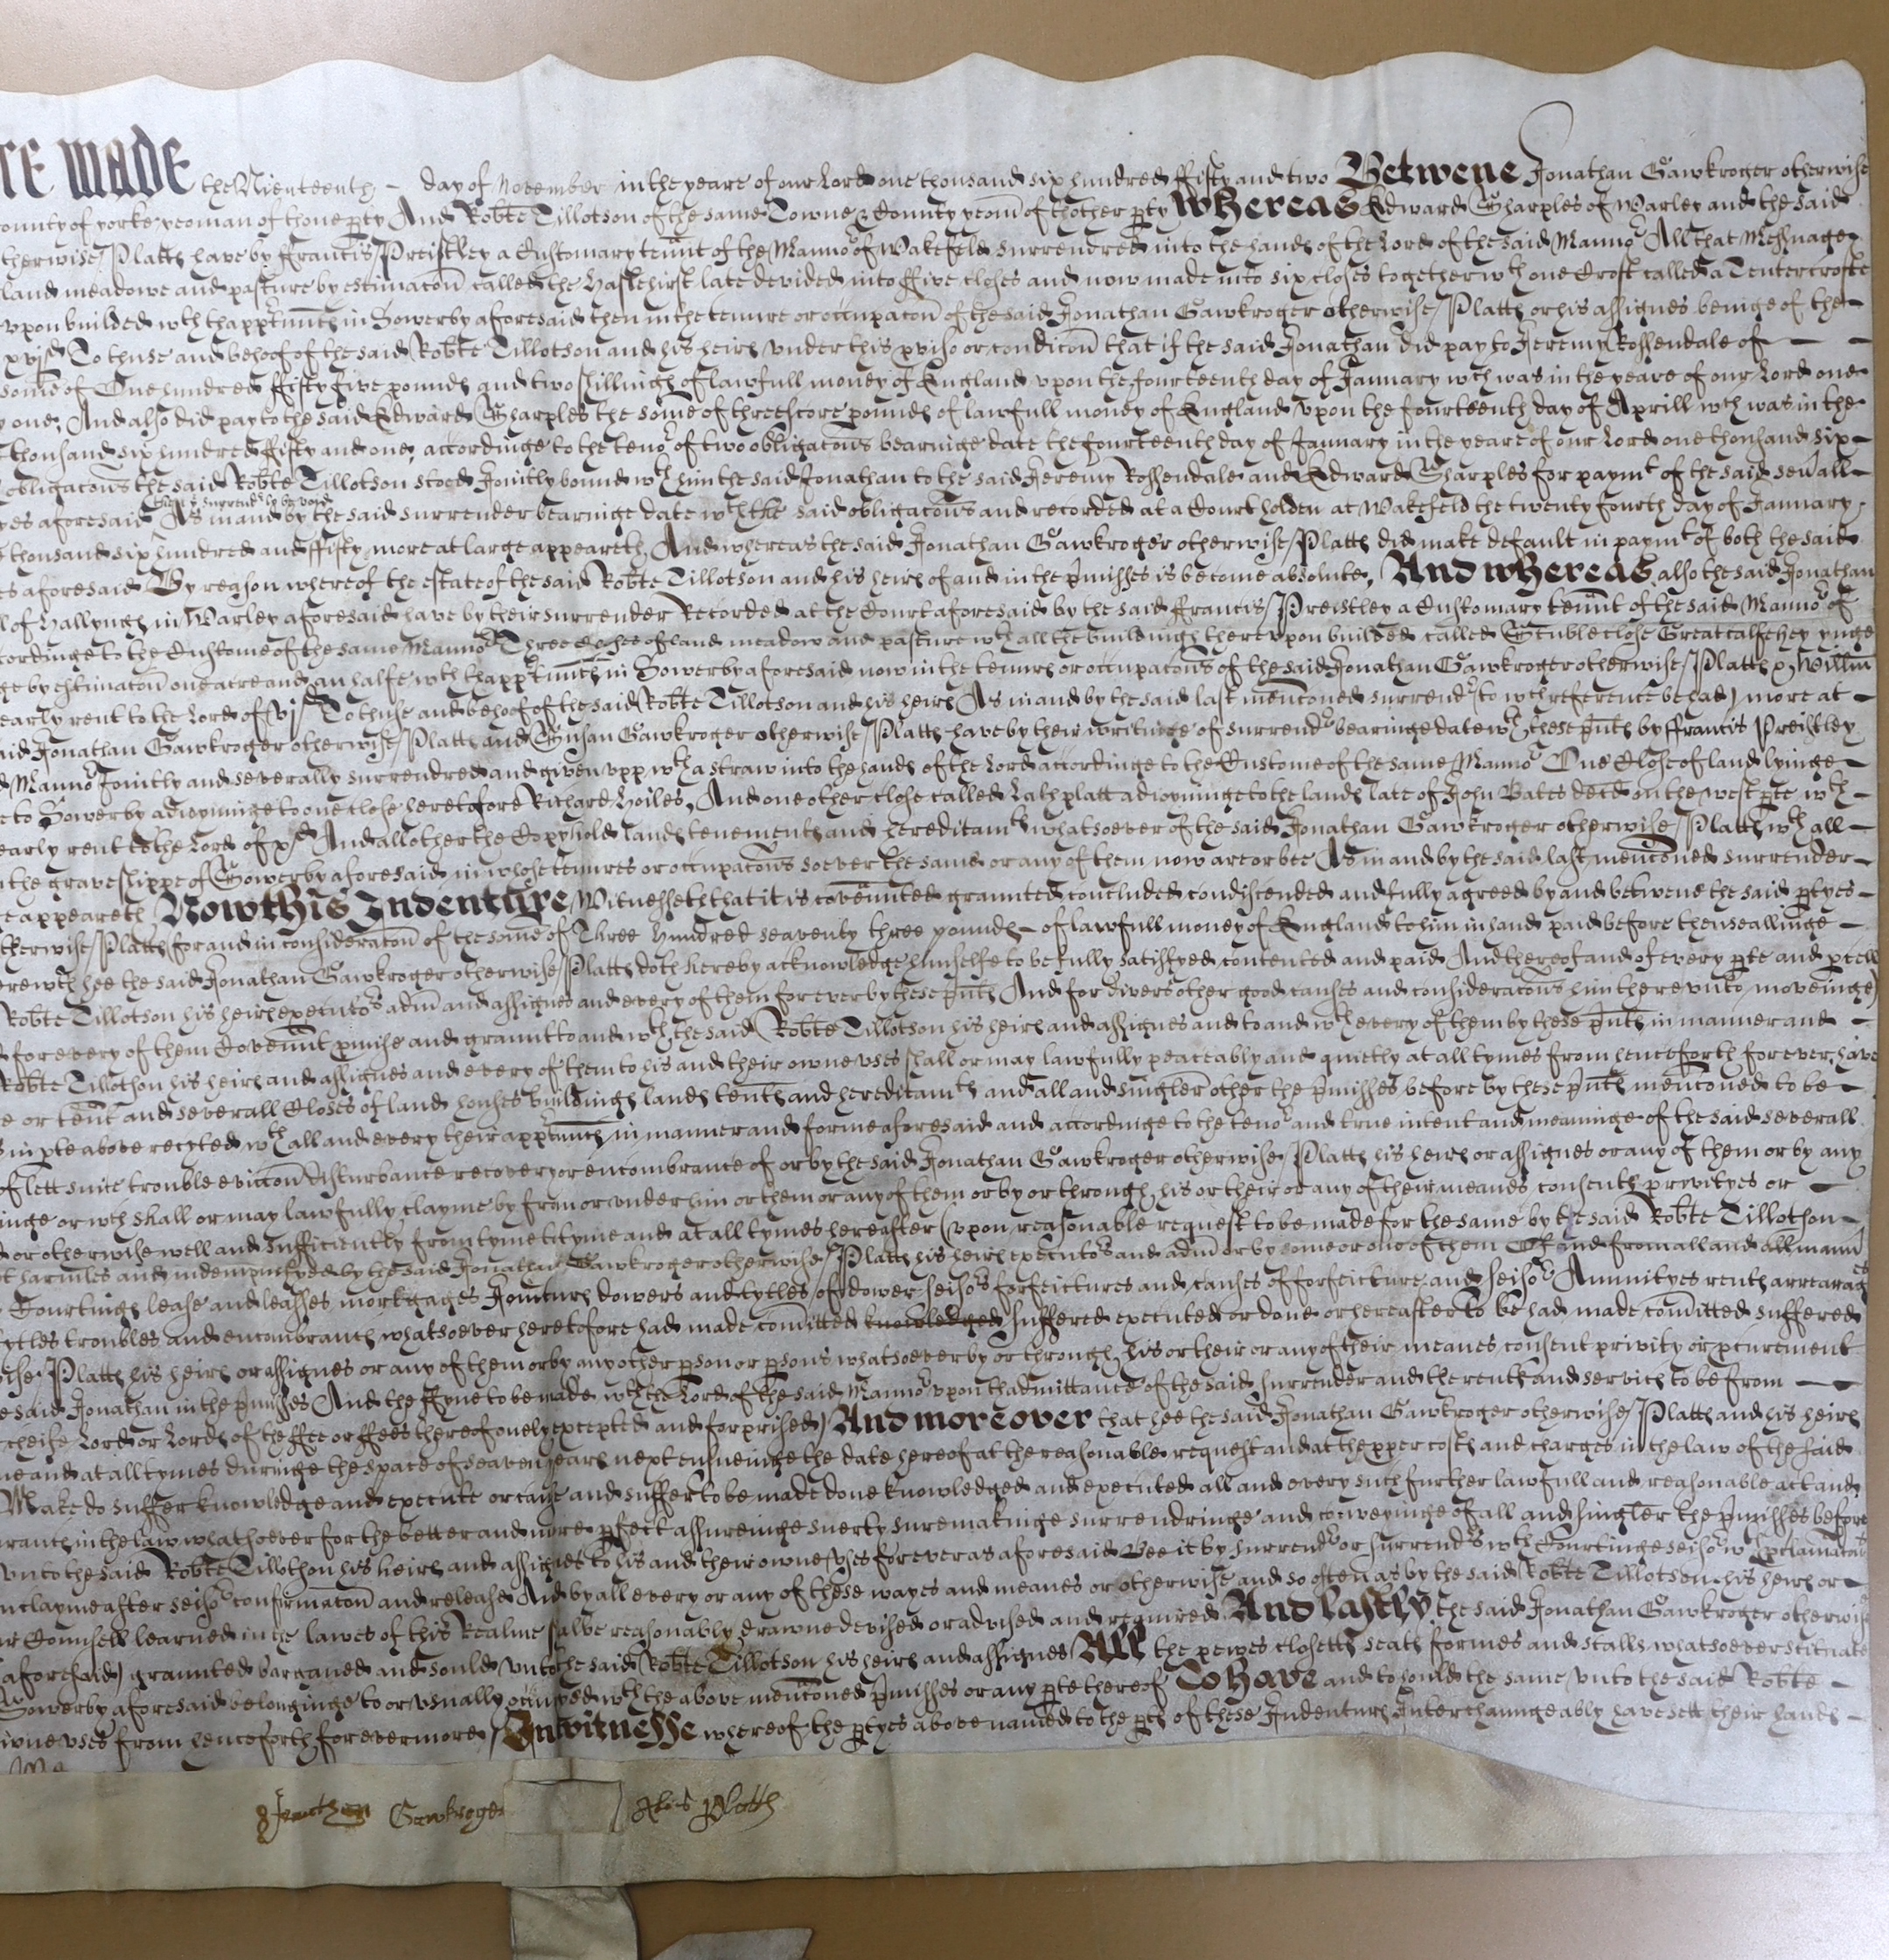 re made the Nienteenth - day of November in the yeare of our Lord one thousand six hundred ffifty and two Betwene Jonathan Gawkroger otherwise
ounty of yorke yeoman of thone pty And Robte Tillotson of the same Towne & County yeom of thother pty Whereas Edward Sharples of Warley and the said
therwise Platts have by ffrancis Preistley a Customary tennt of the Mannor of Wakefeld surrendred into the hands of the Lord of the said Mannor All that Messuage
land meadowe and pasture by estimacon called the Haslehirst late devided into ffive closes and now made into six closes together wth one Croft called a Tentercrofte
vpon builded wth thapptennces in Sowerby aforesaid then in the tenure or occupacon of the said Jonathan Gawkroger otherwise Platts or his assignes beinge of the
To thuse and behoof of the said Robte Tillotson and his heirs vnder this pviso or condicon that if the said Jonathan did pay to Jeremy Rossendale of
some of One hundred ffifty five pounds and two shillings of lawfull money of England vpon the fourteenth day of January wch was in the yeare of our Lord one
one, And also did pay to the said Edward Sharples the some of threescore pounds of lawfull money of England vpon the fourteenth day of Aprill wch was in the
thousand six hundred ffifty and one, accordinge to the tenor of two obligacons bearinge date the fourteenth day of January in the yeare of our Lord one thousand six
obligacons the said Robte Tillotson stood Joyntly bound wth him the said Jonathan to the said Jeremy Rossendale and Edward Sharples for paymt of the said sevall
then ye surrendr to be void
es aforesaid As in and by the said surrender bearinge date wth the said obligacons and recorded at a Court holden at Wakefeld the twenty fourth day of January
thousand six hundred and ffifty more at large appeareth, And whereas the said Jonathan Gawkroger otherwise Platts did make default in paymt of both the said
es aforesaid By reason whereof the estate of the said Robte Tillotson and his heirs of and in the pmisses is become absolute, And whereas also the said Jonathan
of Hallyngs in Warley aforesaid have by their surrender Recorded at the Court aforesaid by the said ffrancis Preistley a Customary tennt of the said Mannor of
cordinge to the Custome of the same Mannor Three Closes of land meadow and pasture wth all the buildings therevpon builded called Stuble close Great calfehey ynge
ge by estimacon one acre and an halfe wth thapptennces in Sowerby aforesaid now in the tenures or occupacons of the said Jonathan Gawkroger otherwise Platts & Willm
early rent to the Lord of vjd To thuse and behoof of the said Robte Tillotson and his heirs As in and by the said last menconed surrendr (to wch reference be had) more at
aid Jonathan Gawkroger otherwise Platts and Susan Gawkroger otherwise Platts have by their writinge of surrendr bearinge date wth these pnts by ffrancis Preistley
d Mannor Jointly and severally surrendred and given vpp wth a straw into the hands of the Lord accordinge to the Custome of the same Mannor One Close of land lyinge
to Sowerby adioyninge to one close heretofore Richard Hoiles, And one other close called Lathplatt adioyninge to the lands late of John Bates decd on the west pte wth
early rent to the Lord of xd And all other the Copyhold lands tenements and hereditamts whatsoever of the said Jonathan Gawkroger otherwise Platts wth all
the graveshippe of Sowerby aforesaid in whose tenures or occupacons soever the same or any of them now are or bee As in and by the said last menconed surrender
e appeareth Now this Indenture Witnesseth that it is covennted graunted concluded condiscended and fully agreed by and betwene the said ptyes
therwise Platts for and in consideracon of the some of Three Hundred seaventy three pounds - of lawfull money of England to him in hand paid before thensealinge
rewth hee the said Jonathan Gawkroger otherwise Platts doth hereby acknowledge himselfe to be fully satisfyed contented and paid And thereof and of every pte and pcell
Robte Tillotson his heirs executors adm and assignes and every of them for ever by these pnts And for divers other good causes and consideracons him therevnto moveinge
for every of them Covennt pmise and graunt to and wth the said Robte Tillotson his heirs and assignes and to and wth every of them by these pnts in manner and
Robte Tillotson his heirs and assignes and every of them to his and their owne vses shall or may lawfully peaceably and quietly at all tymes from henceforth for ever, have
e or tent and severall Closes of land houses buildings lands tents and hereditamts and all and singler other the pmisses before by these pnts menconed to be
s in pte above recyted wth all and every their apptennces in manner and forme aforesaid and accordinge to the tenor and true intent and meaninge of the said severall
of lett suite trouble eviccon disturbance recovery or encombrance of or by the said Jonathan Gawkroger otherwise Platts his heirs or assignes or any of them or by any
inge or wch shall or may lawfully clayme by from or vnder him or them or any of them or by or through his or their or any of their meanes consents privityes or
or otherwise well and sufficiently from tyme to tyme and at all tymes hereafter (vpon reasonable request to be made for the same by the said Robte Tillotson
t harmles and indempnifyed by the said Jonathan Gawkroger otherwise Platts his heirs executors and adm or by some or one of them Of and from all and all mannr
Courtings lease and leasses mortgages Joyntures dowers and tytles of dower seisors forfeictures and causes of forfeicture and seisor Annuityes rents arrearages
ytles troubles and encombrances whatsoever heretofore had made comitted knowledged suffered executed or done or hereafter to be had made comitted suffered
ise Platts his heirs or assignes or any of them or by any other pson or psons whatsoever by or through his or their or any of their meanes consent privity or pcurement
e said Jonathan in the pmisses And the ffyne to be made wth the Lord of the said Mannor vpon thadmittance of the said surrender and the rents and services to be from
cheife Lord or Lords of the ffee or ffees thereof onely excepted and forprised) And moreover that hee the said Jonathan Gawkroger otherwise Platts and his heirs
me and at all tymes duringe the space of seaven years next ensueinge the date hereof at the reasonable request and at the pper costs and charges in the law of the said
Make do suffer knowledge and execute or cause and suffer to be made done knowledged and executed all and every such further lawfull and reasonable act and
urances in the law whatsoever for the better and more pfect assureinge suerty suremakinge surrendringe and conveyinge of all and singler the pmisses before
vnto the said Robte Tillotson his heirs and assignes to his and their owne vses for ever as aforesaid Bee it by surrendr or surrendrs wth Courtinge seisor wth pclamacons
n clayme after seisor confirmacon and release And by all every or any of these wayes and meanes or otherwise and so often as by the said Robte Tillotson his heirs or
ir Counsell learned in the lawes of this Realme shalbe reasonably drawne devised or advised and required And lastly the said Jonathan Gawkroger otherwise
aforesaid) graunted bargained and sould vnto the said Robte Tillotson his heirs and assignes All the pewes closetts seats formes and stalls whatsoever scituate
Sowerby aforesaid belonginge to or vsually occupyed wth the above menconed pmisses or any pte thereof To have and to hould the same vnto the said Robte
owne vses from henceforth for evermore / In witnesse whereof the ptyes above named to the pts of these Indentures Interchaungeably have sett their hands
Jonathan Gawkroger Alis Platts